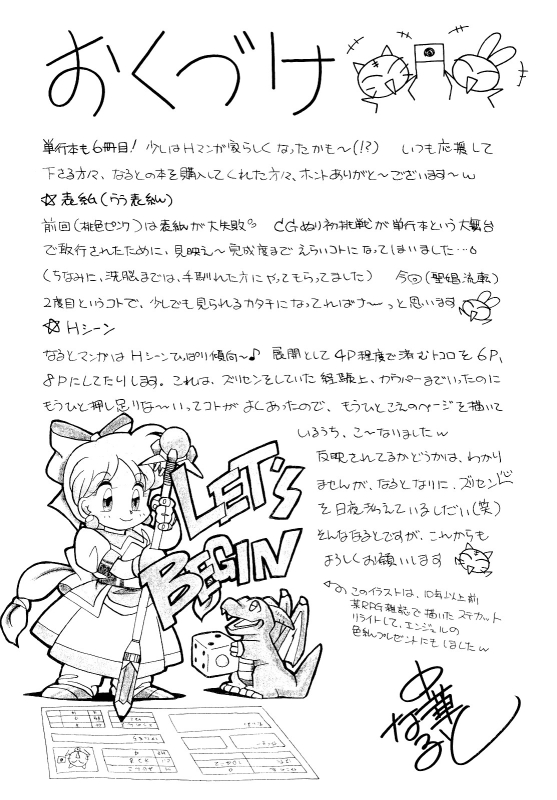 おくづけ
単行本も6冊目! 少しはHマンガ家らしくなったかも〜(!?) いつも応援して
下さる方々、なるとの本を購入してくれた方々、ホントありがと〜ございます〜w
☆表紙(うら表紙)
前回(桃色ピンク)は表紙が大失敗。CGぬり初挑戦が単行本という大舞台
で敢行されたために、見映え〜完成度までえらいコトになってしまいました…。
(ちなみに、洗脳までは、手馴れた方にやってもらってました) 今回(聖娼流転)
2度目というコトで、少しでも見られるカタチになってればナ〜っと思います
☆Hシーン
なるとマンガはHシーンひっぱり傾向〜♪ 展開として4P程度で済むトコロを6P、
8Pにしてたりします。これは、ズリセンをしていた経験上、カラパーまでいったのに
もうひと押し足りな〜いってコトがよくあったので、もうひとこえのページを描いて
いるうち、こ〜なりましたw
反映されてるかどうかは、わかり
ませんが、なるとなりに、ズリセン
を日夜考えていましだい(笑)
そんななるとですが、これからも
よろしくお願いします
このイラストは、10年以上前
某RPG雑誌で描いたステカット
リライトして、エンジェルの
色紙プレゼントにもしましたw
LET'S
BEGIN
中華
なると